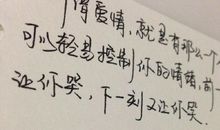 情爱情，就是有那么一个人
可以轻易控制你的情绪，前一
让你哭，下一刻又让你哭.